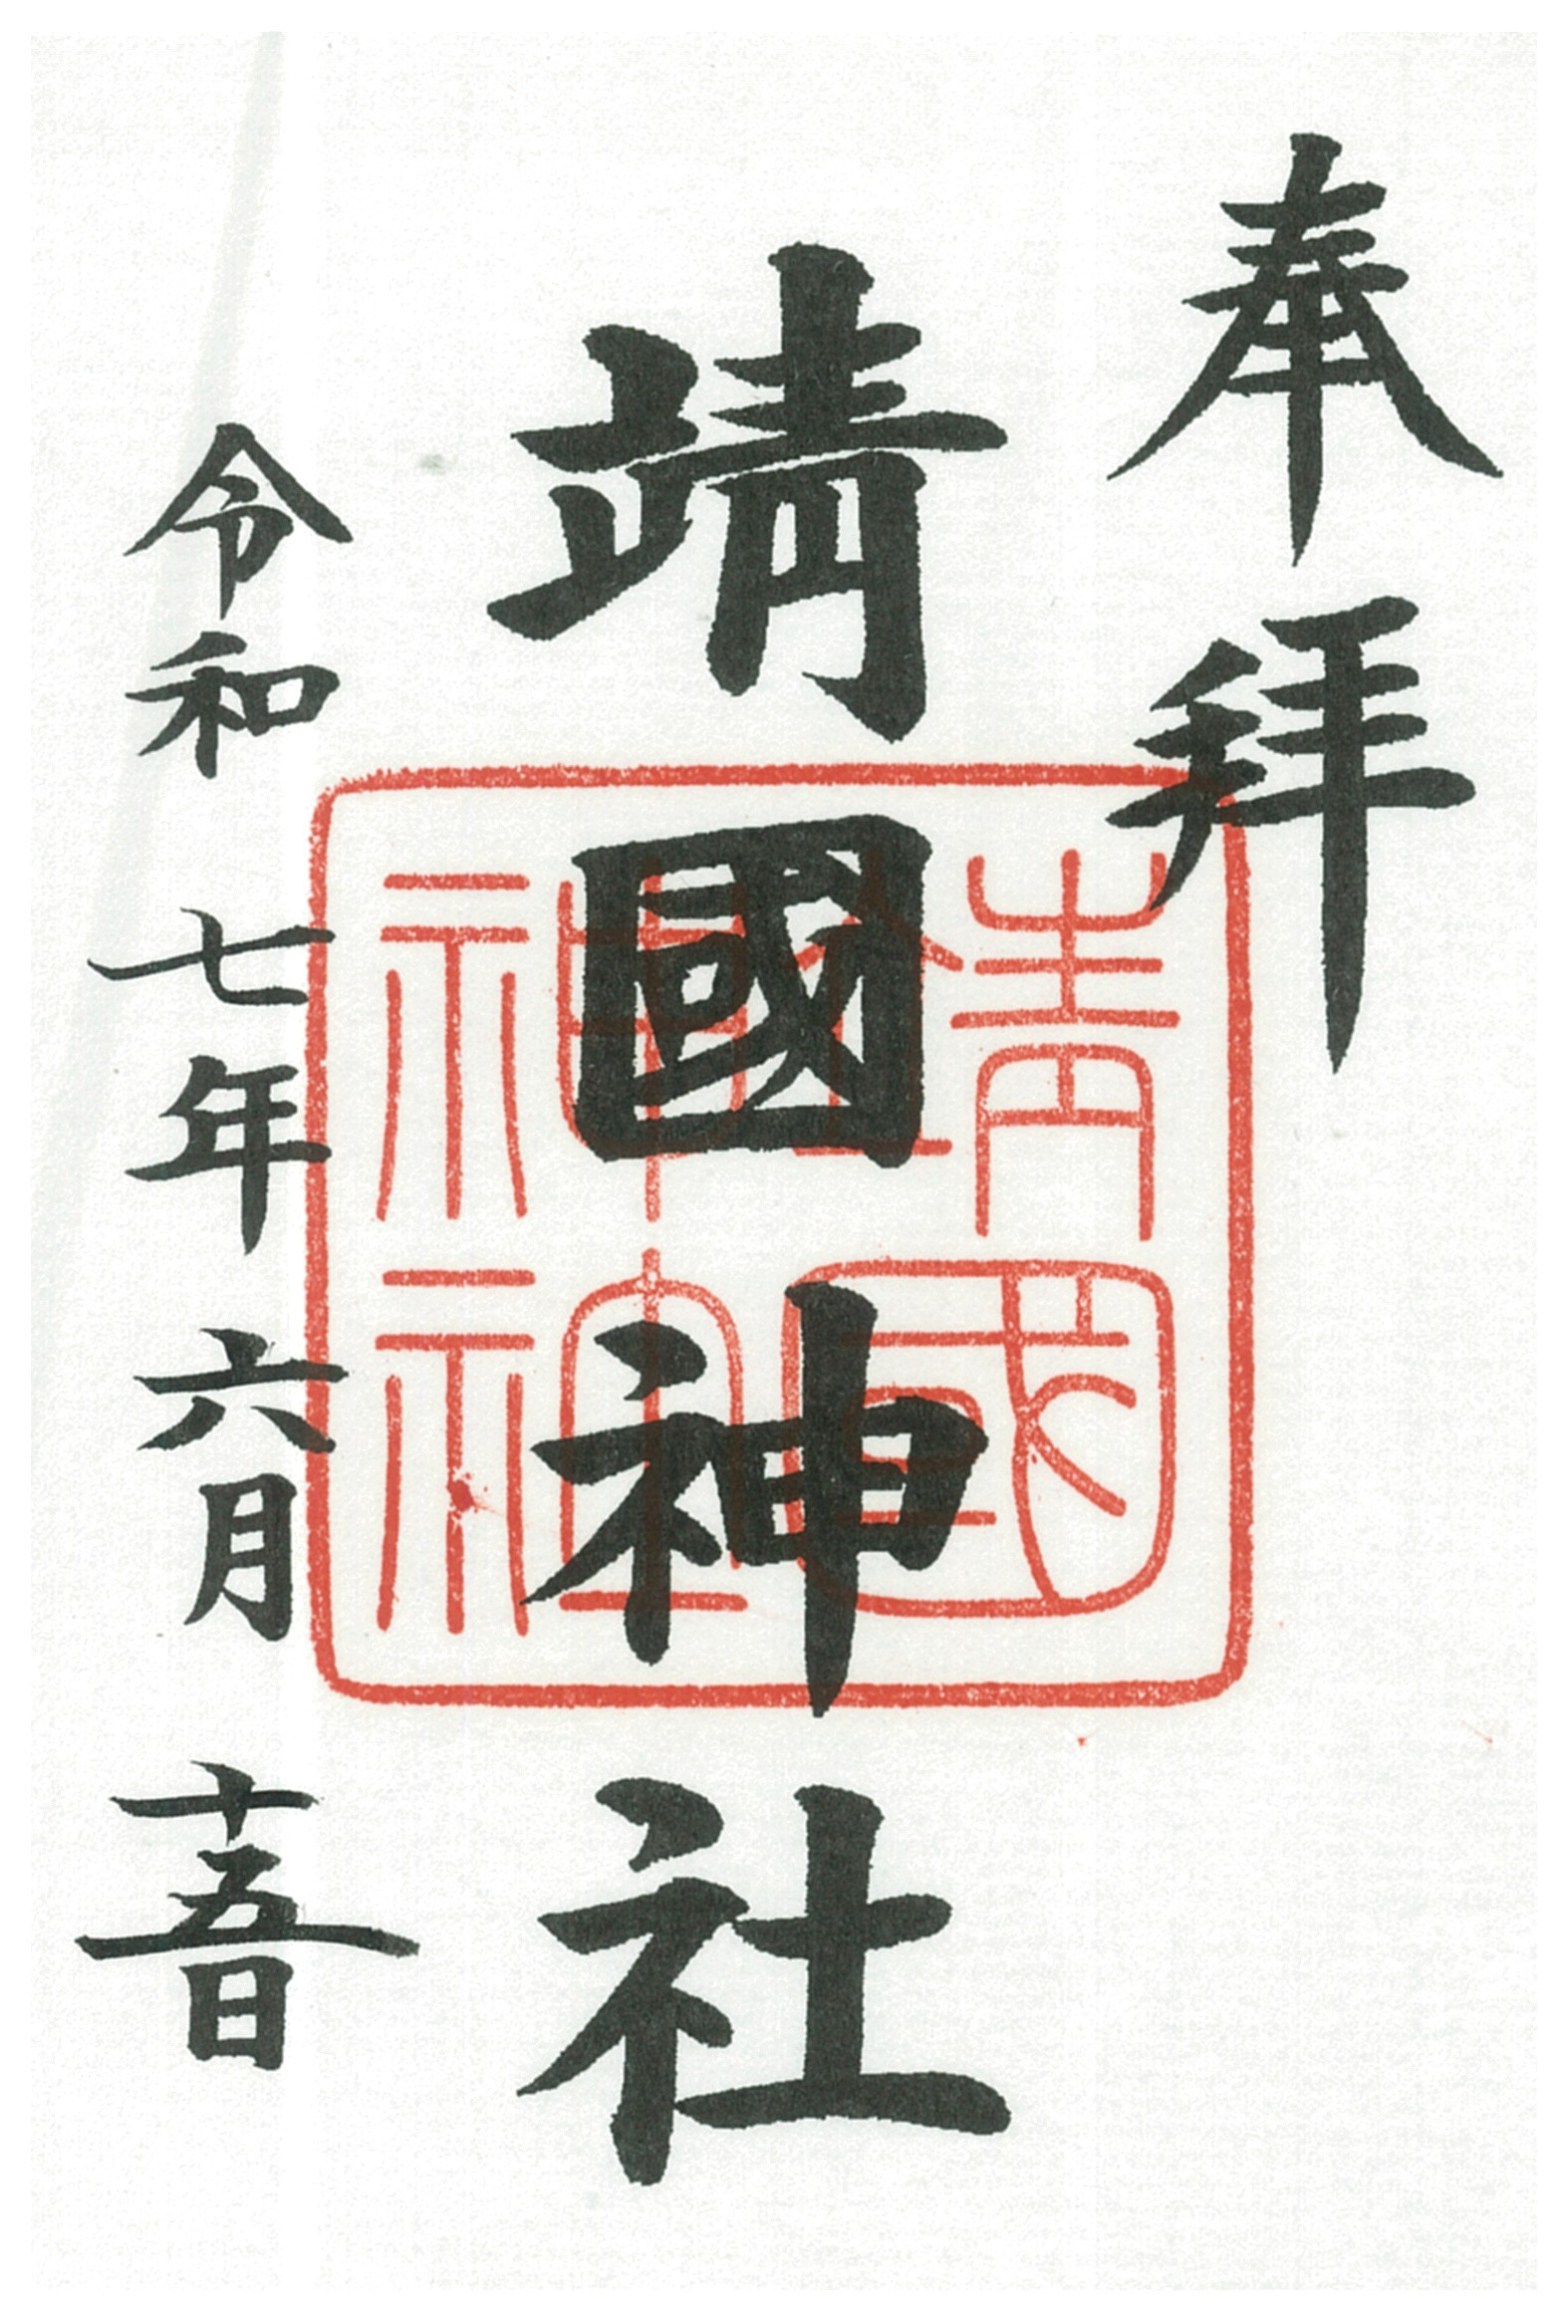 奉拝
靖國神社
令和七年六月十五日
靖國神社